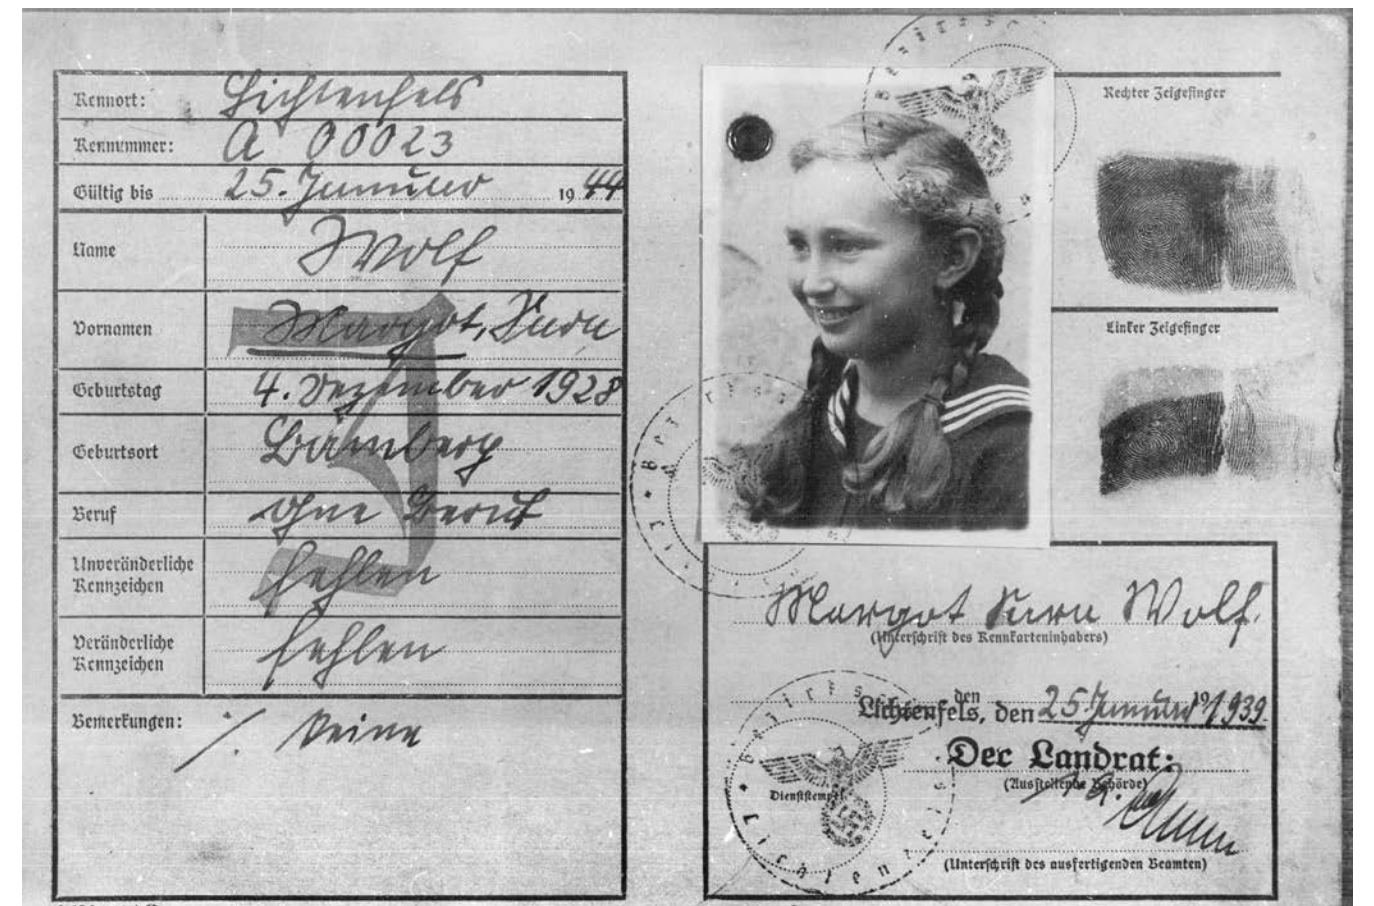 Kennort: Lichtenfels
Kennummer: A 00023
Gültig bis 25. Januar 1944
Name Wolf
Vornamen Margot, Sara
Geburtstag 4. Dezember 1928
Geburtsort Bamberg
Beruf ohne Beruf
Unveränderliche
Kennzeichen fehlen
Veränderliche
Kennzeichen fehlen
Bemerkungen: ./. Keine
J
Rechter Zeigefinger
Linker Zeigefinger
Margot Sara Wolf.
(Unterschrift des Kennkarteninhabers)
Lichtenfels, den 25 Januar 1939.
Der Landrat:
(Ausstellende Behörde)
Dienststempel
(Unterschrift des ausfertigenden Beamten)